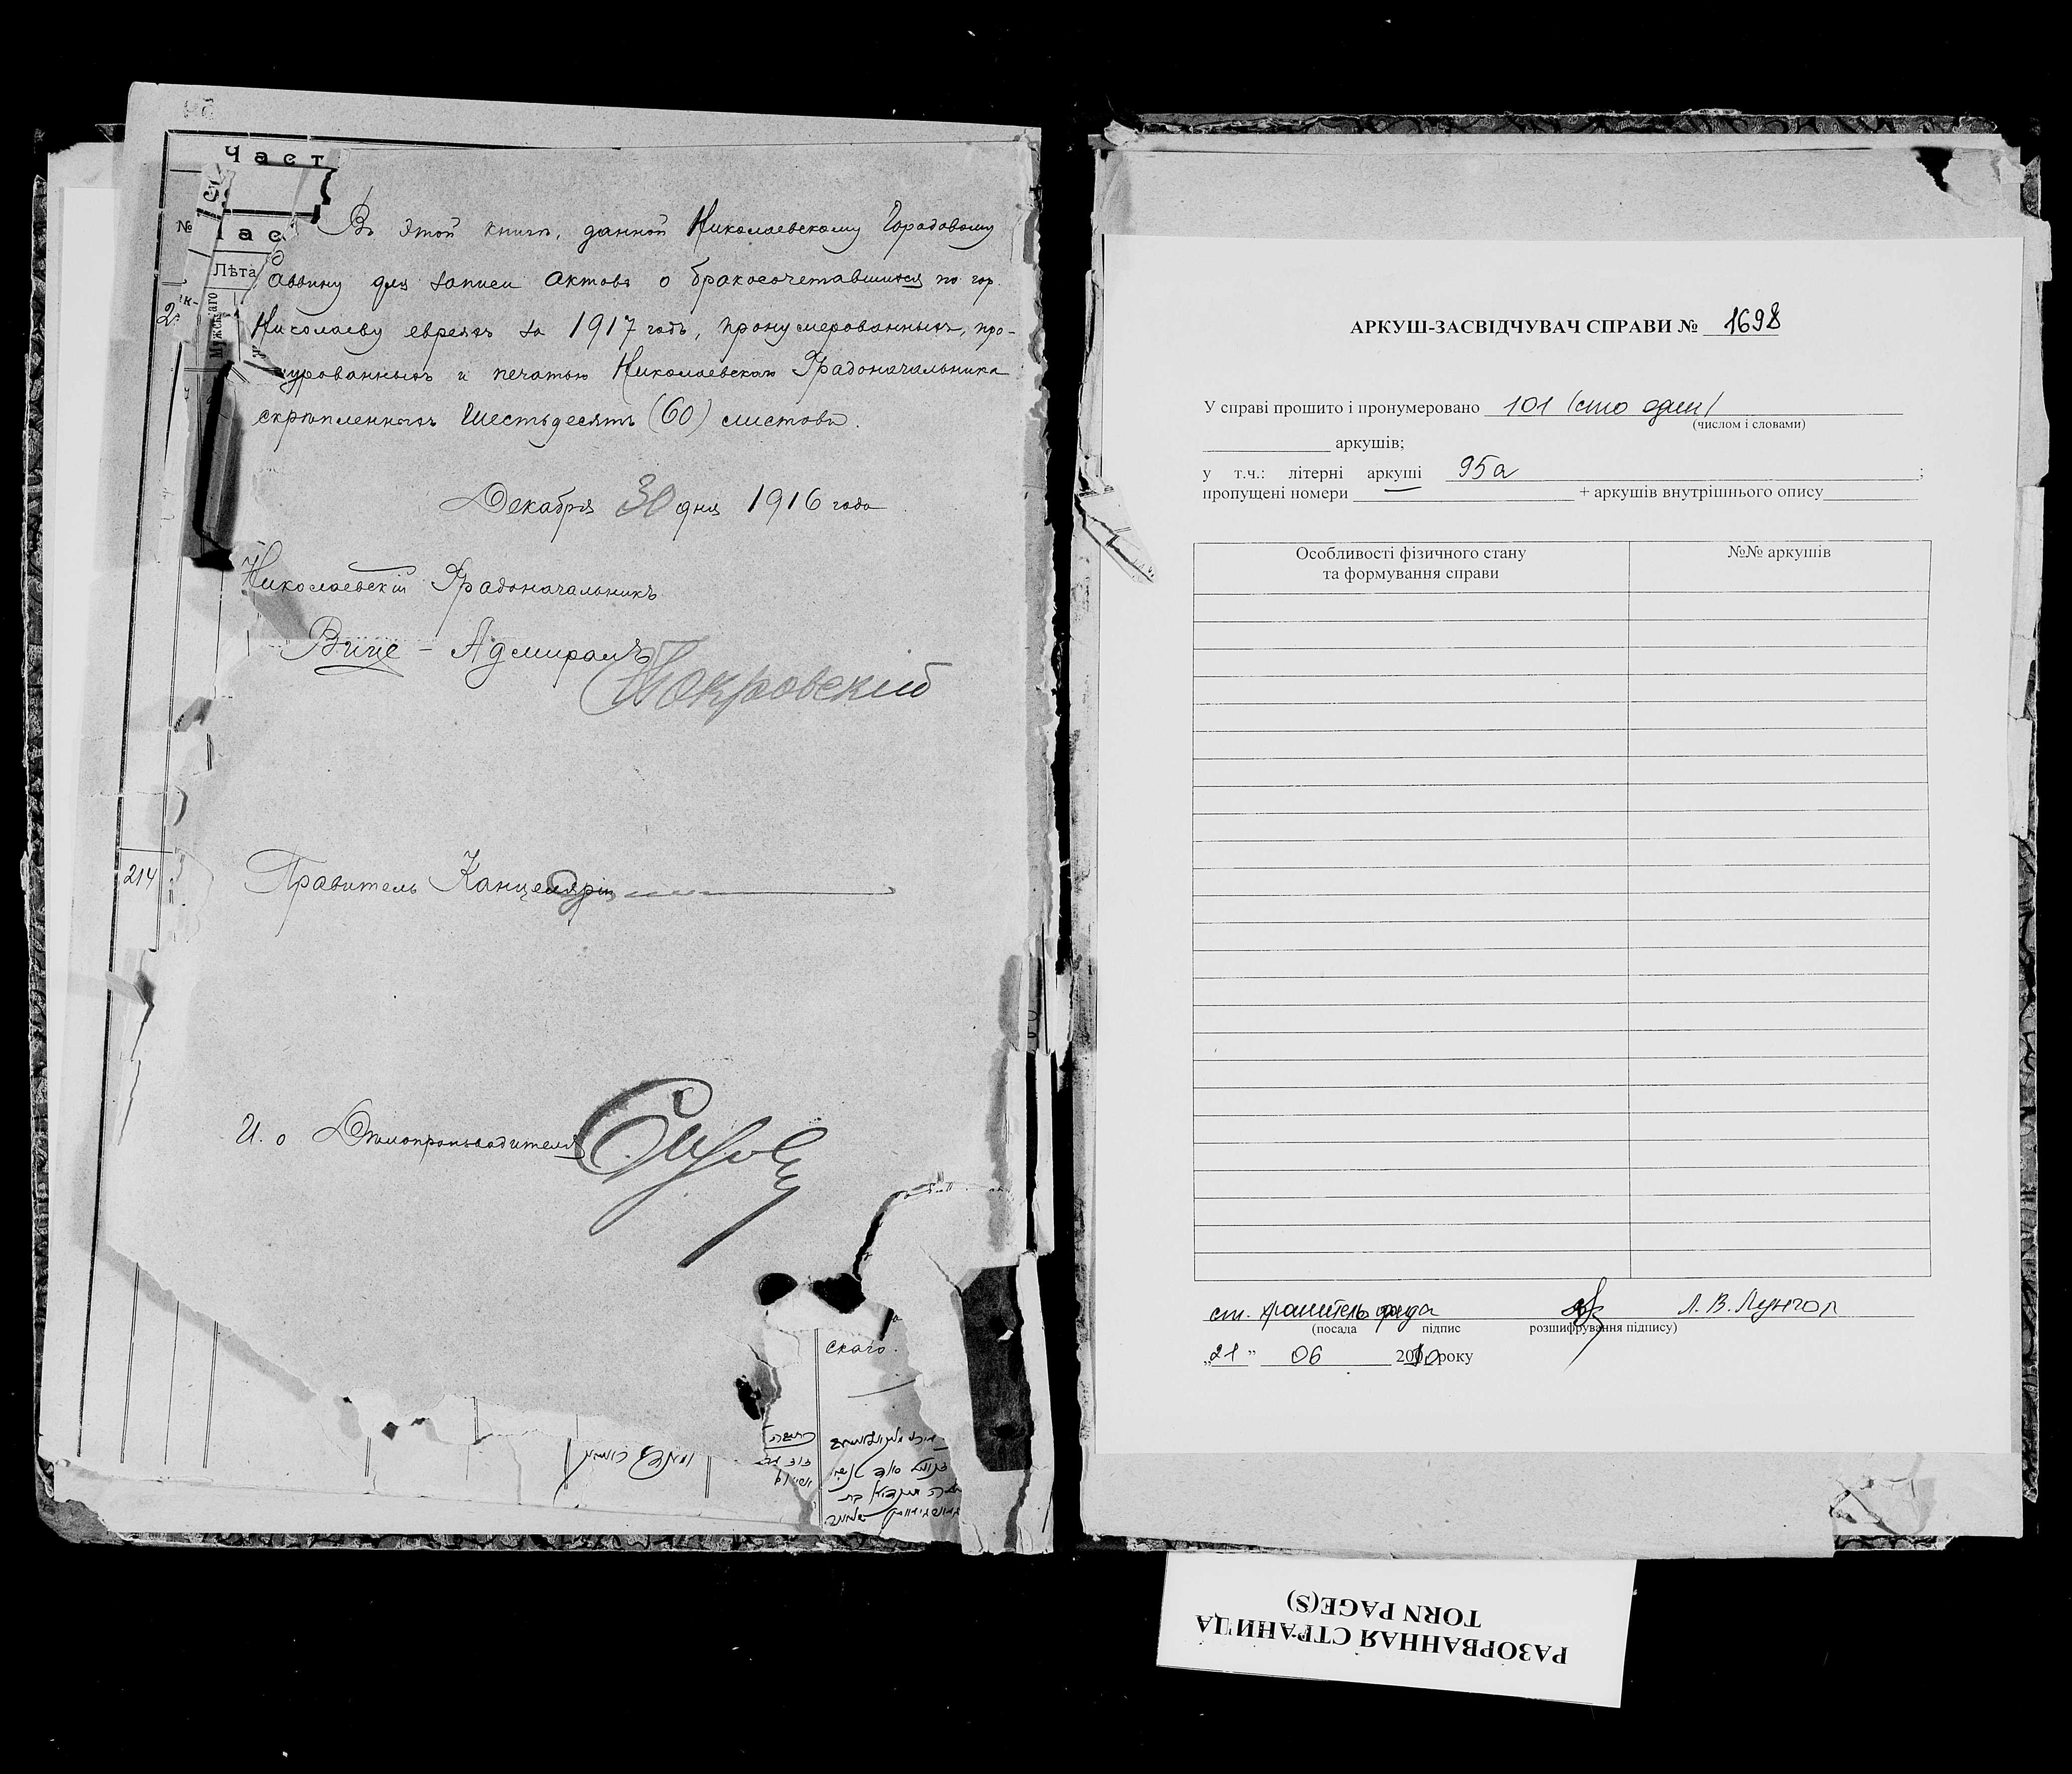 Част
№
Час
Лѣта
Мужскаго
214
Въ этой книгѣ, данной Николаевскому Городовому
Раввину для записи актовъ о бракосочетавшихся по гор.
Николаеву евреяхъ за 1917 годъ, пронумерованныхъ, про-
шнурованныхъ и печатью Николаевскаго Градоначальника
скрѣпленныхъ Шестьдесятъ (60) листовъ.
Декабря 30 дня 1916 года
Николаевскій Градоначальникъ
Вице - Адмиралъ Покровскій
Правитель Канцеляріи
И. о Дѣлопроизводителя
скаго.
АРКУШ-ЗАСВІДЧУВАЧ СПРАВИ № 1698
У справі прошито і пронумеровано 101 (сто один)
(числом і словами)
аркушів;
у т.ч.: літерні аркуші 95а ;
пропущені номери — + аркушів внутрішнього опису
Особливості фізичного стану
та формування справи
№№ аркушів
ст. хранитель фонда Л. В.
(посада підпис розшифрування підпису)
„21" 06 2010 року
РАЗОРВАННАЯ СТРАНИЦА
TORN PAGE(S)